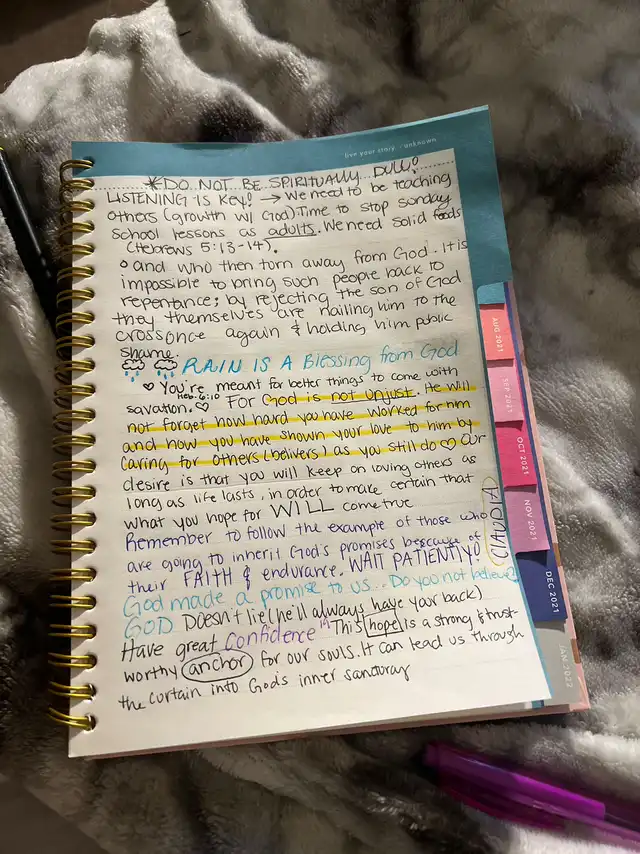 live your story. unknown
*DO NOT BE SPIRITUALLY DULL!
LISTENING IS KEY! → We need to be teaching
others (growth w/ God) Time to stop sunday
school lessons as adults. We need solid foods
(Hebrews 5:13-14).
and who then turn away from God. It is
impossible to bring such people back to
repentance; by rejecting the son of God
they themselves are nailing him to the
cross once again & holding him public
shame.
RAIN IS A Blessing from God
♡ You're meant for better things to come with
Heb. 6:10
savation. ♡ For God is not unjust. He will
not forget how hard you have worked for him
and how you have shown your love to him by
caring for others (belivers) as you still do ♡ Our
desire is that you will keep on loving others as
long as life lasts, in order to make certain that
what you hope for WILL come true
Remember to follow the example of those who
are going to inherit God's promises because of
their FAITH & endurance. WAIT PATIENTLY!
CLAUDIA
God made a promise to us... Do you not believe?
GOD Doesn't lie (he'll always have your back)
Have great confidence "This hope is a strong & trust-
worthy anchor for our souls. It can lead us through
the curtain into God's inner sancturay
AUG 2021
SEP 2021
OCT 2021
NOV 2021
DEC 2021
JAN 2022